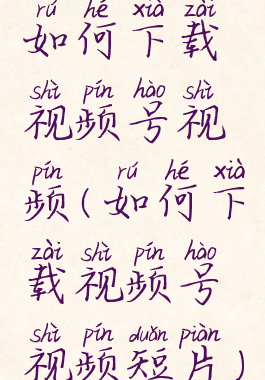 rú hé xià zài
如何下载
shì pín hào shì
视频号视
pín rú hé xià
频(如何下
zài shì pín hào
载视频号
shì pín duǎn piàn
视频短片)